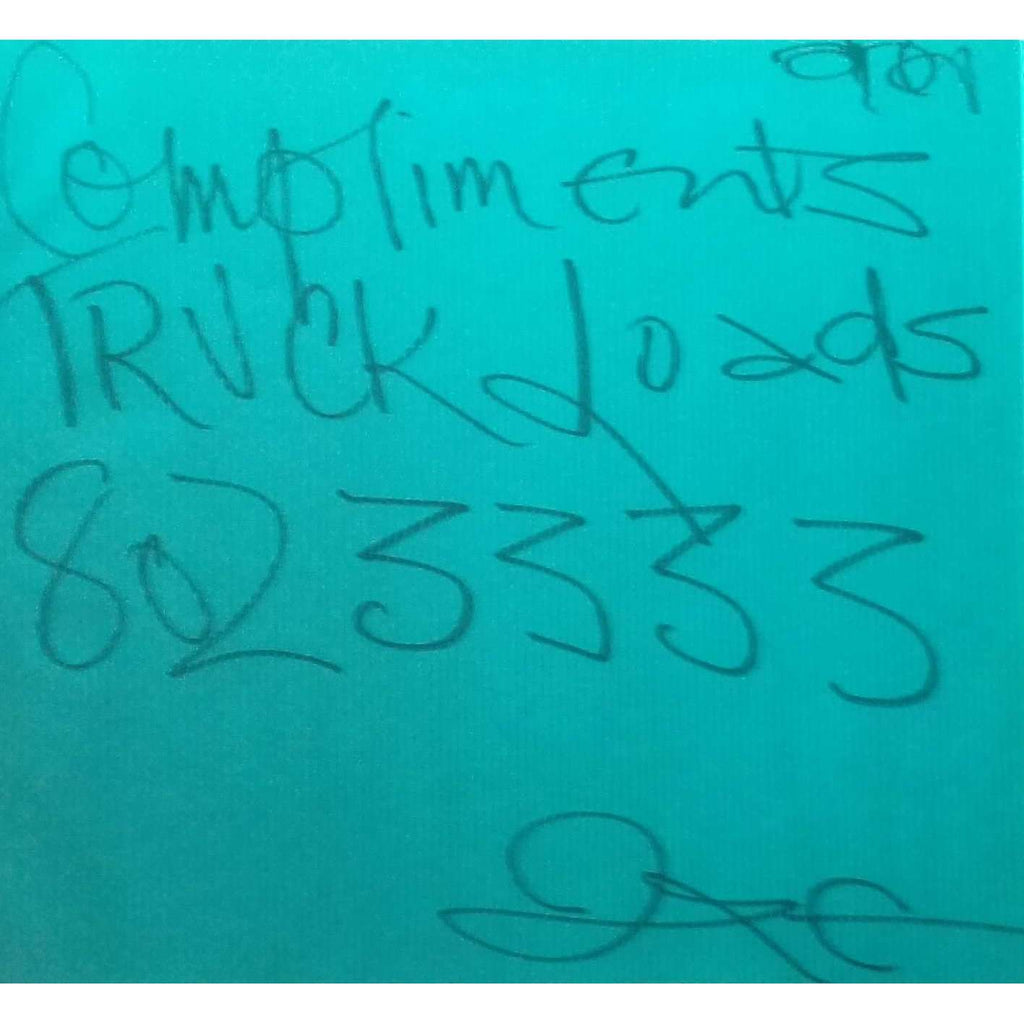 Compliments
TRUCK Loads
802 3333